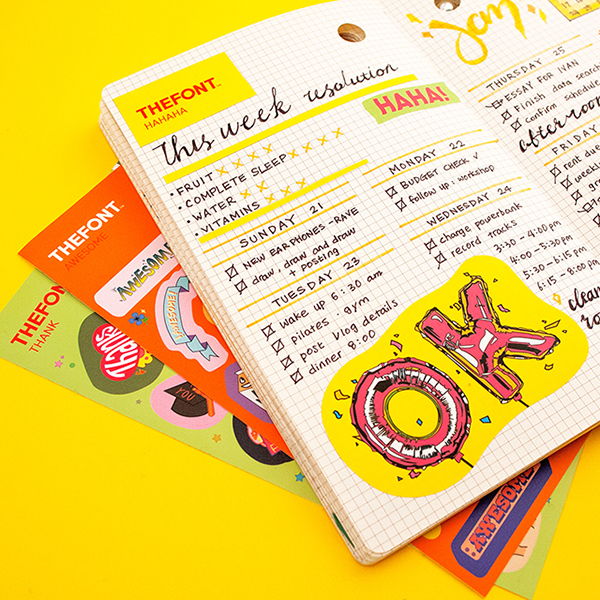 THEFONT™
HAHAHA
This week resolution
HAHA!
• FRUIT x x x x
• COMPLETE SLEEP x x x x
• WATER x x x x
• VITAMINS x x x x
SUNDAY 21
☒ NEW EARPHONES - RAVE
☒ draw, draw and draw
+ posting
TUESDAY 23
☒ wake up 6:30 am
☒ pilates, gym
☒ post vlog details
☒ dinner 8:00
MONDAY 22
☒ BUDGET CHECK V
☒ follow up: workshop
WEDNESDAY 24
☒ charge powerbank
☒ record tracks
3:30 - 4:00 pm
4:00 - 5:30 pm
5:30 - 6:15 pm
6:15 - 8:00 pm
OK
Jan
THURSDAY 25
ESSAY FOR IVAN
☒ Finish data search
☒ confirm schedule
afternoon
FRIDAY
rent due
weekly
clean
THEFONT™
AWESOME
AWESOME
AWESOME!
THEFONT
THANK
Thanks
YOU
AWESOME